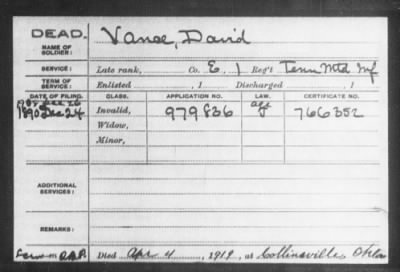 DEAD.
NAME OF SOLDIER:
Vance, David
SERVICE:
Late rank, Co. E, 1 Reg't Tenn Mtd Inf
TERM OF SERVICE:
Enlisted , 1 Discharged , 1
DATE OF FILING. CLASS. APPLICATION NO. LAW. CERTIFICATE NO.
1890 Dec 24 Invalid, 979836 age 766352
Widow,
Minor,
ADDITIONAL SERVICES:
REMARKS:
Died Apr 4, 1919, at Collinsville, Okla